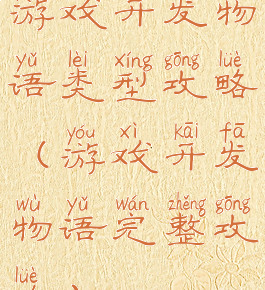 游戏开发物
yǔ lèi xíng gōng lüè
语类型攻略
yóu xì kāi fā
（游戏开发
wù yǔ wán zhěng gōng
物语完整攻
lüè